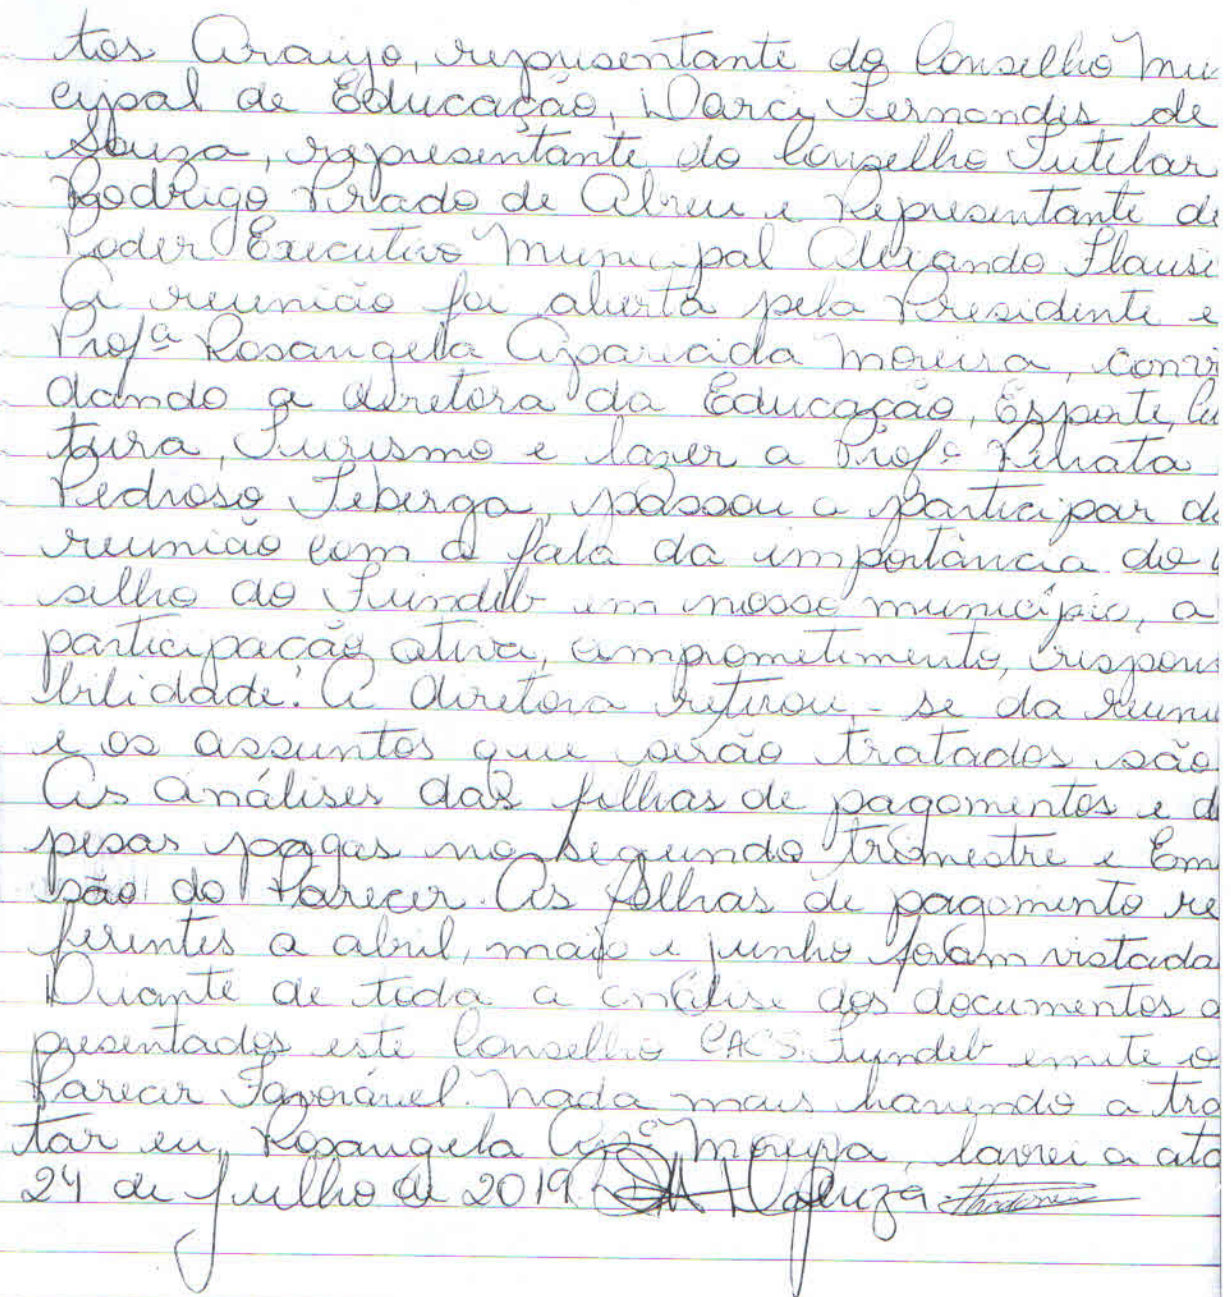 tos Araujo, representante do Conselho Mu
cipal de Educação, Darci Fernandes de
Souza, representante do Conselho Tutelar
Rodrigo Prado de Abreu e Representante do
Poder Executivo Municipal Alexando Flausi
A reunião foi aberta pela Presidente e
Profª Rosangela Aparecida Moreira, convi
dando a diretora da Educação, Esporte, Cu
tura, Turismo e lazer a Profª Renata
Pedroso Teberga, passou a participar da
reunião com a fala da importância do
selho do Fundeb em nosso município, a
participação ativa, comprometimento, respons
bilidade. A diretora retirou-se da reuni
e os assuntos que serão tratados são
As análises das folhas de pagamentos e d
pesas pagas no segundo trimestre e Em
são do Parecer. As folhas de pagamento re
ferentes a abril, maio e junho foram vistada
Diante de toda a análise dos documentos a
presentados este Conselho CACS. Fundeb emite o
Parecer Favorável. Nada mais havendo a tra
tar eu, Rosangela Apª Moreira, lavrei a ata
24 de Julho de 2019.